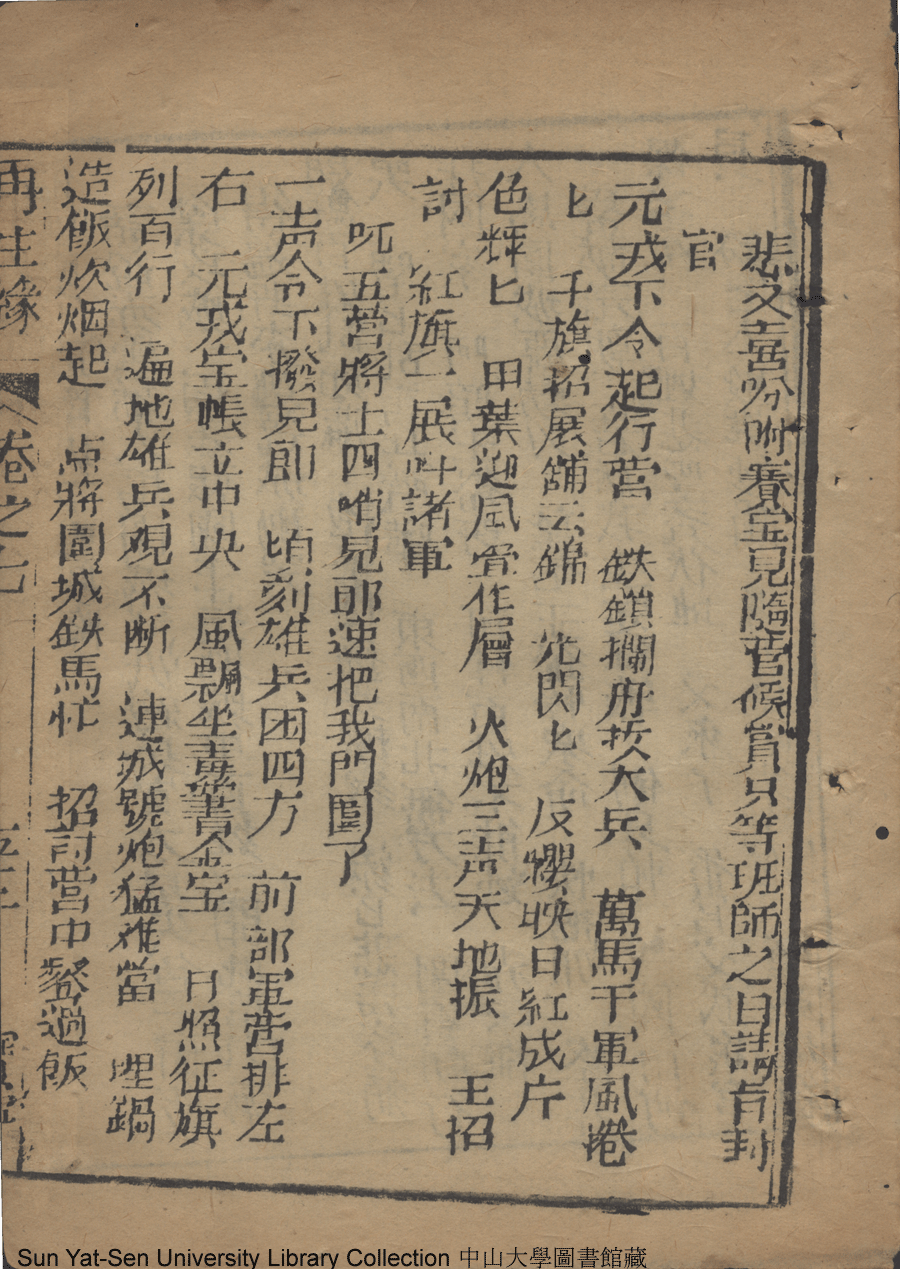 悲又喜吩咐賽宝見隨营候賞只等班師之日請旨封
官
元戎下令起行营 鉄鎖攔府拔大兵 萬馬千軍風捲
匕 千旗招展舖云錦 光閃匕 反櫻映日紅成片
色輝匕 甲葉迎風作層 火炮三声天地振 王招
討 紅旗一展叫諸軍
吰五营將士四哨見郎速把我門圍了
一声令下撥見郎 頃刻雄兵困四方 前部軍营排左
右 元戎宝帳立中央 風飄坐纛書金宝 日照征旗
列百行 遍地雄兵观不断 連城號炮猛难當 埋鍋
造飯炊烟起 点將圍城鉄馬忙 招討营中餐過飯
再生緣 卷之七